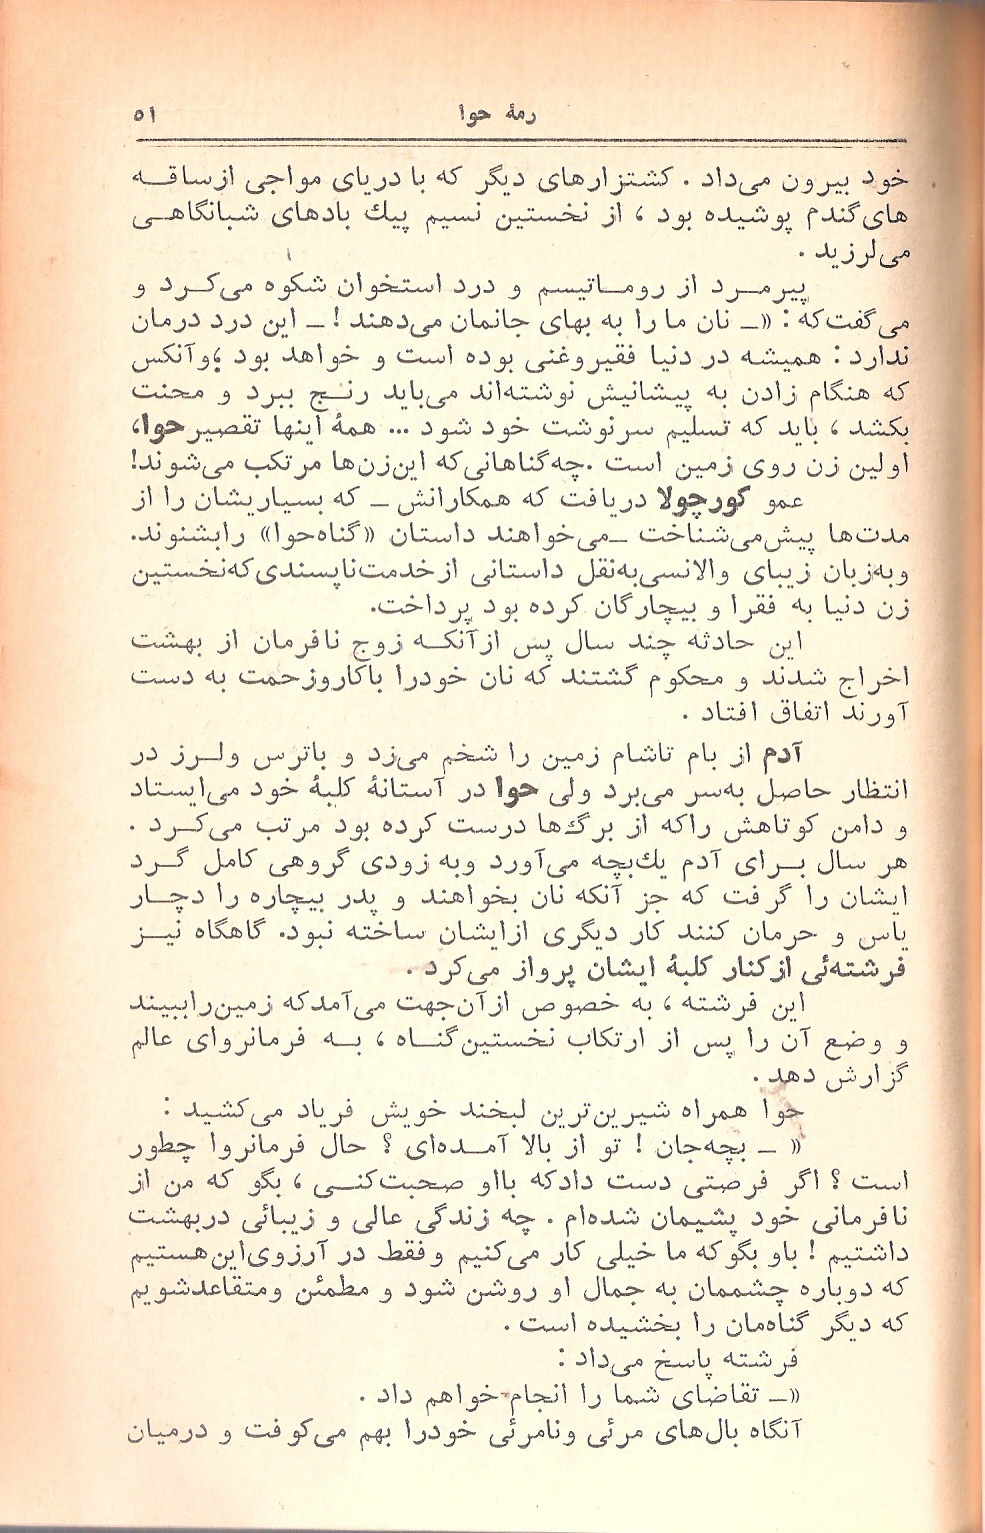 رمهٔ حوا ۵۱
خود بیرون می‌داد . کشتزارهای دیگر که با دریای مواجی ازساقـه
های‌گندم پوشیده بود ، از نخستین نسیم پیك بادهای شبانگاهـی
می‌لرزید .
پیرمـرد از رومـاتیسم و درد استخوان شکوه می‌کـرد و
می‌گفت‌که : «ـ نان ما را به بهای جانمان می‌دهند ! ـ این درد درمان
ندارد : همیشه در دنیا فقیروغنی بوده است و خواهد بود ؛وآنکس
که هنگام زادن به پیشانیش نوشته‌اند می‌باید رنـج ببرد و محنت
بکشد ، باید که تسلیم سرنوشت خود شود ... همهٔ اینها تقصیرحوا،
اولین زن روی زمین است .چه‌گناهانی‌که این‌زن‌ها مرتکب می‌شوند!
عمو کورچولا دریافت که همکارانش ـ که بسیاریشان را از
مدت‌ها پیش‌می‌شناخت ـ‌می‌خواهند داستان «گناه‌حوا» رابشنوند.
وبه‌زبان زیبای والانسی‌به‌نقل داستانی ازخدمت‌ناپسندی‌که‌نخستین
زن دنیا به فقرا و بیچارگان کرده بود پرداخت.
این حادثه چند سال پس ازآنکـه زوج نافرمان از بهشت
اخراج شدند و محکوم گشتند که نان خودرا باکاروزحمت به دست
آورند اتفاق افتاد .
آدم از بام تاشام زمین را شخم می‌زد و باترس ولـرز در
انتظار حاصل به‌سر می‌برد ولی حوا در آستانهٔ کلبهٔ خود می‌ایستاد
و دامن کوتاهش راکه از برگ‌ها درست کرده بود مرتب می‌کـرد .
هر سال بـرای آدم یك‌بچه می‌آورد وبه زودی گروهی کامل گـرد
ایشان را گرفت که جز آنکه نان بخواهند و پدر بیچاره را دچـار
یاس و حرمان کنند کار دیگری ازایشان ساخته نبود. گاهگاه نیـز
فرشته‌ئی ازکنار کلبهٔ ایشان پرواز می‌کرد .
این فرشته ، به خصوص ازآن‌جهت می‌آمدکه زمین‌راببیند
و وضع آن را پس از ارتکاب نخستین‌گنـاه ، بـه فرمانروای عالم
گزارش دهد .
حوا همراه شیرین‌ترین لبخند خویش فریاد می‌کشید :
« ـ بچه‌جان ! تو از بالا آمـده‌ای ؟ حال فرمانروا چطور
است ؟ اگر فرصتی دست دادکه بااو صحبت‌کنـی ، بگو که من از
نافرمانی خود پشیمان شده‌ام . چه زندگی عالی و زیبائی دربهشت
داشتیم ! باو بگو که ما خیلی کار می‌کنیم وفقط در آرزوی‌این‌هستیم
که دوباره چشممان به جمال او روشن شود و مطمئن ومتقاعدشویم
که دیگر گناه‌مان را بخشیده است .
فرشته پاسخ می‌داد :
«ـ تقاضای شما را انجام خواهم داد .
آنگاه بال‌های مرئی ونامرئی خودرا بهم می‌کوفت و درمیان